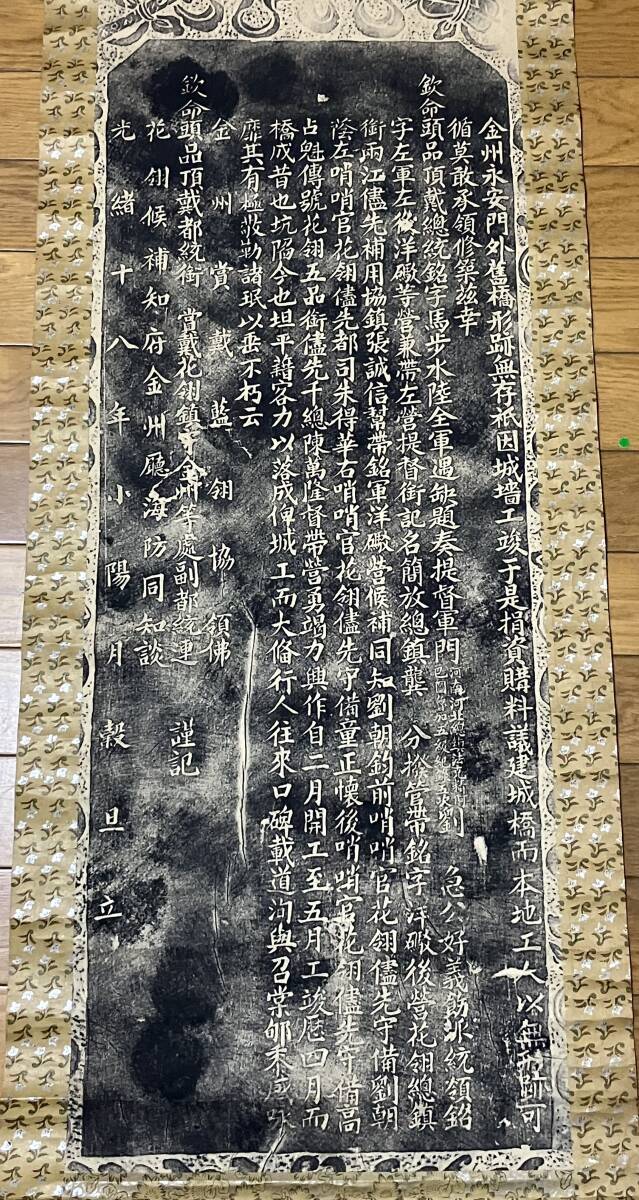 金州永安門外舊橋形跡無存祇因城墻工竣于是捐資購料議建城橋而本地工人以無形跡可
循莫敢承領修築茲幸
欽命頭品頂戴總統銘字馬步水陸全軍遇缺題奏提督軍門劉 急公好義飭派統領銘
字左軍左後洋礮等營兼帶左營提督銜記名簡放總鎮龔 分撥管帶銘字洋礮後營花翎總鎮
銜兩江儘先補用協鎮張誠信幫帶銘軍洋礮營候補同知劉朝鈞前哨哨官花翎儘先守備劉朝
蔭左哨哨官花翎儘先都司朱得華右哨哨官花翎儘先守備童正懷後哨哨官花翎儘先守備高
占魁傳號花翎五品銜儘先千總陳萬隆督帶營勇竭力興作自二月開工至五月工竣歷四月而
橋成昔也坑陷今也坦平藉客力以落成俾城工而大備行人往來口碑載道洵與召棠郇黍
靡其有極敬勒諸珉以垂不朽云
金州賞戴藍翎協領佛
欽命頭品頂戴都統銜賞戴花翎鎮守金州等處副都統連 謹記
花翎候補知府金州廳海防同知談
光緒十八年小陽月穀旦立